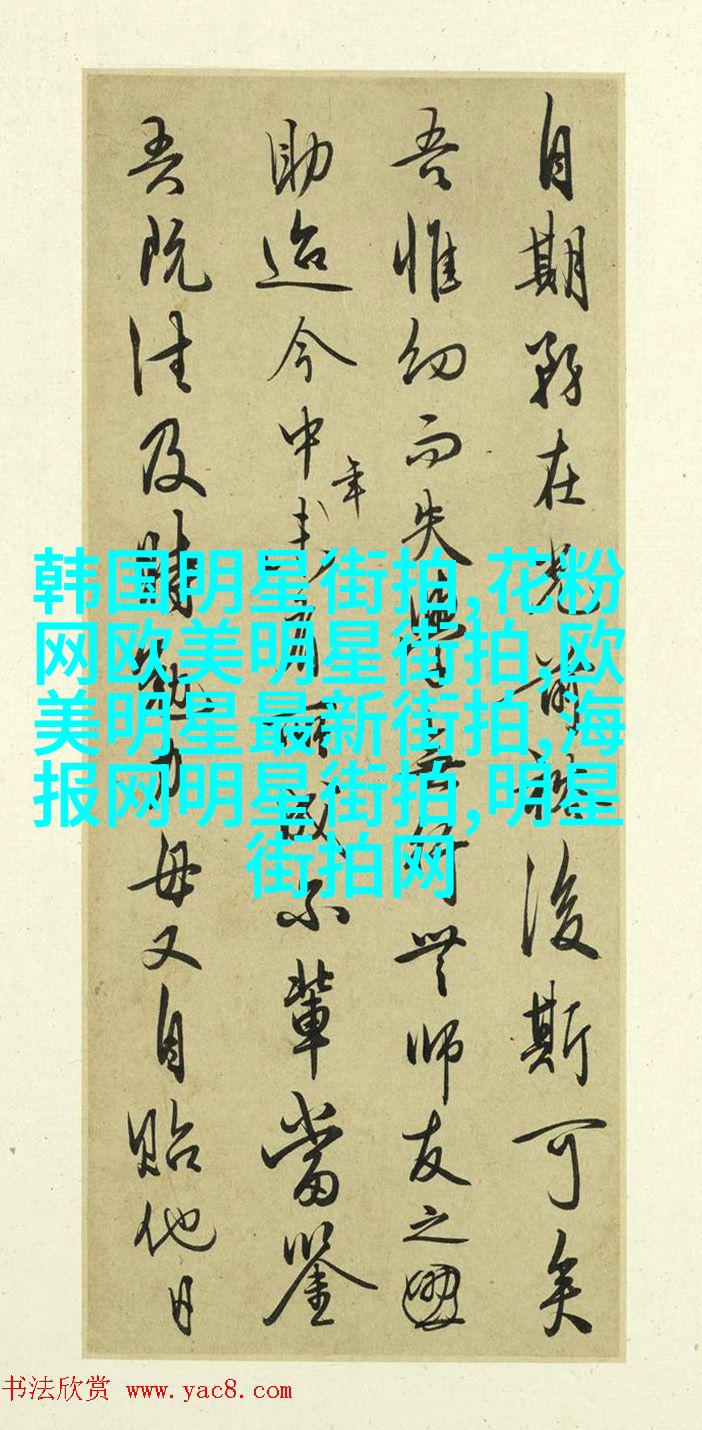 自期務在光前裕後斯可矣
吾惟幼而失學無行無師友之
助迨今中年未有所成尔輩當鑒
吾既往及時勉力毋又自貽他日
韩国明星街拍,花粉
网欧美明星街拍,欧
美明星最新街拍,海
报网明星街拍,明星
街拍网
书法欣赏 www.yac8.com